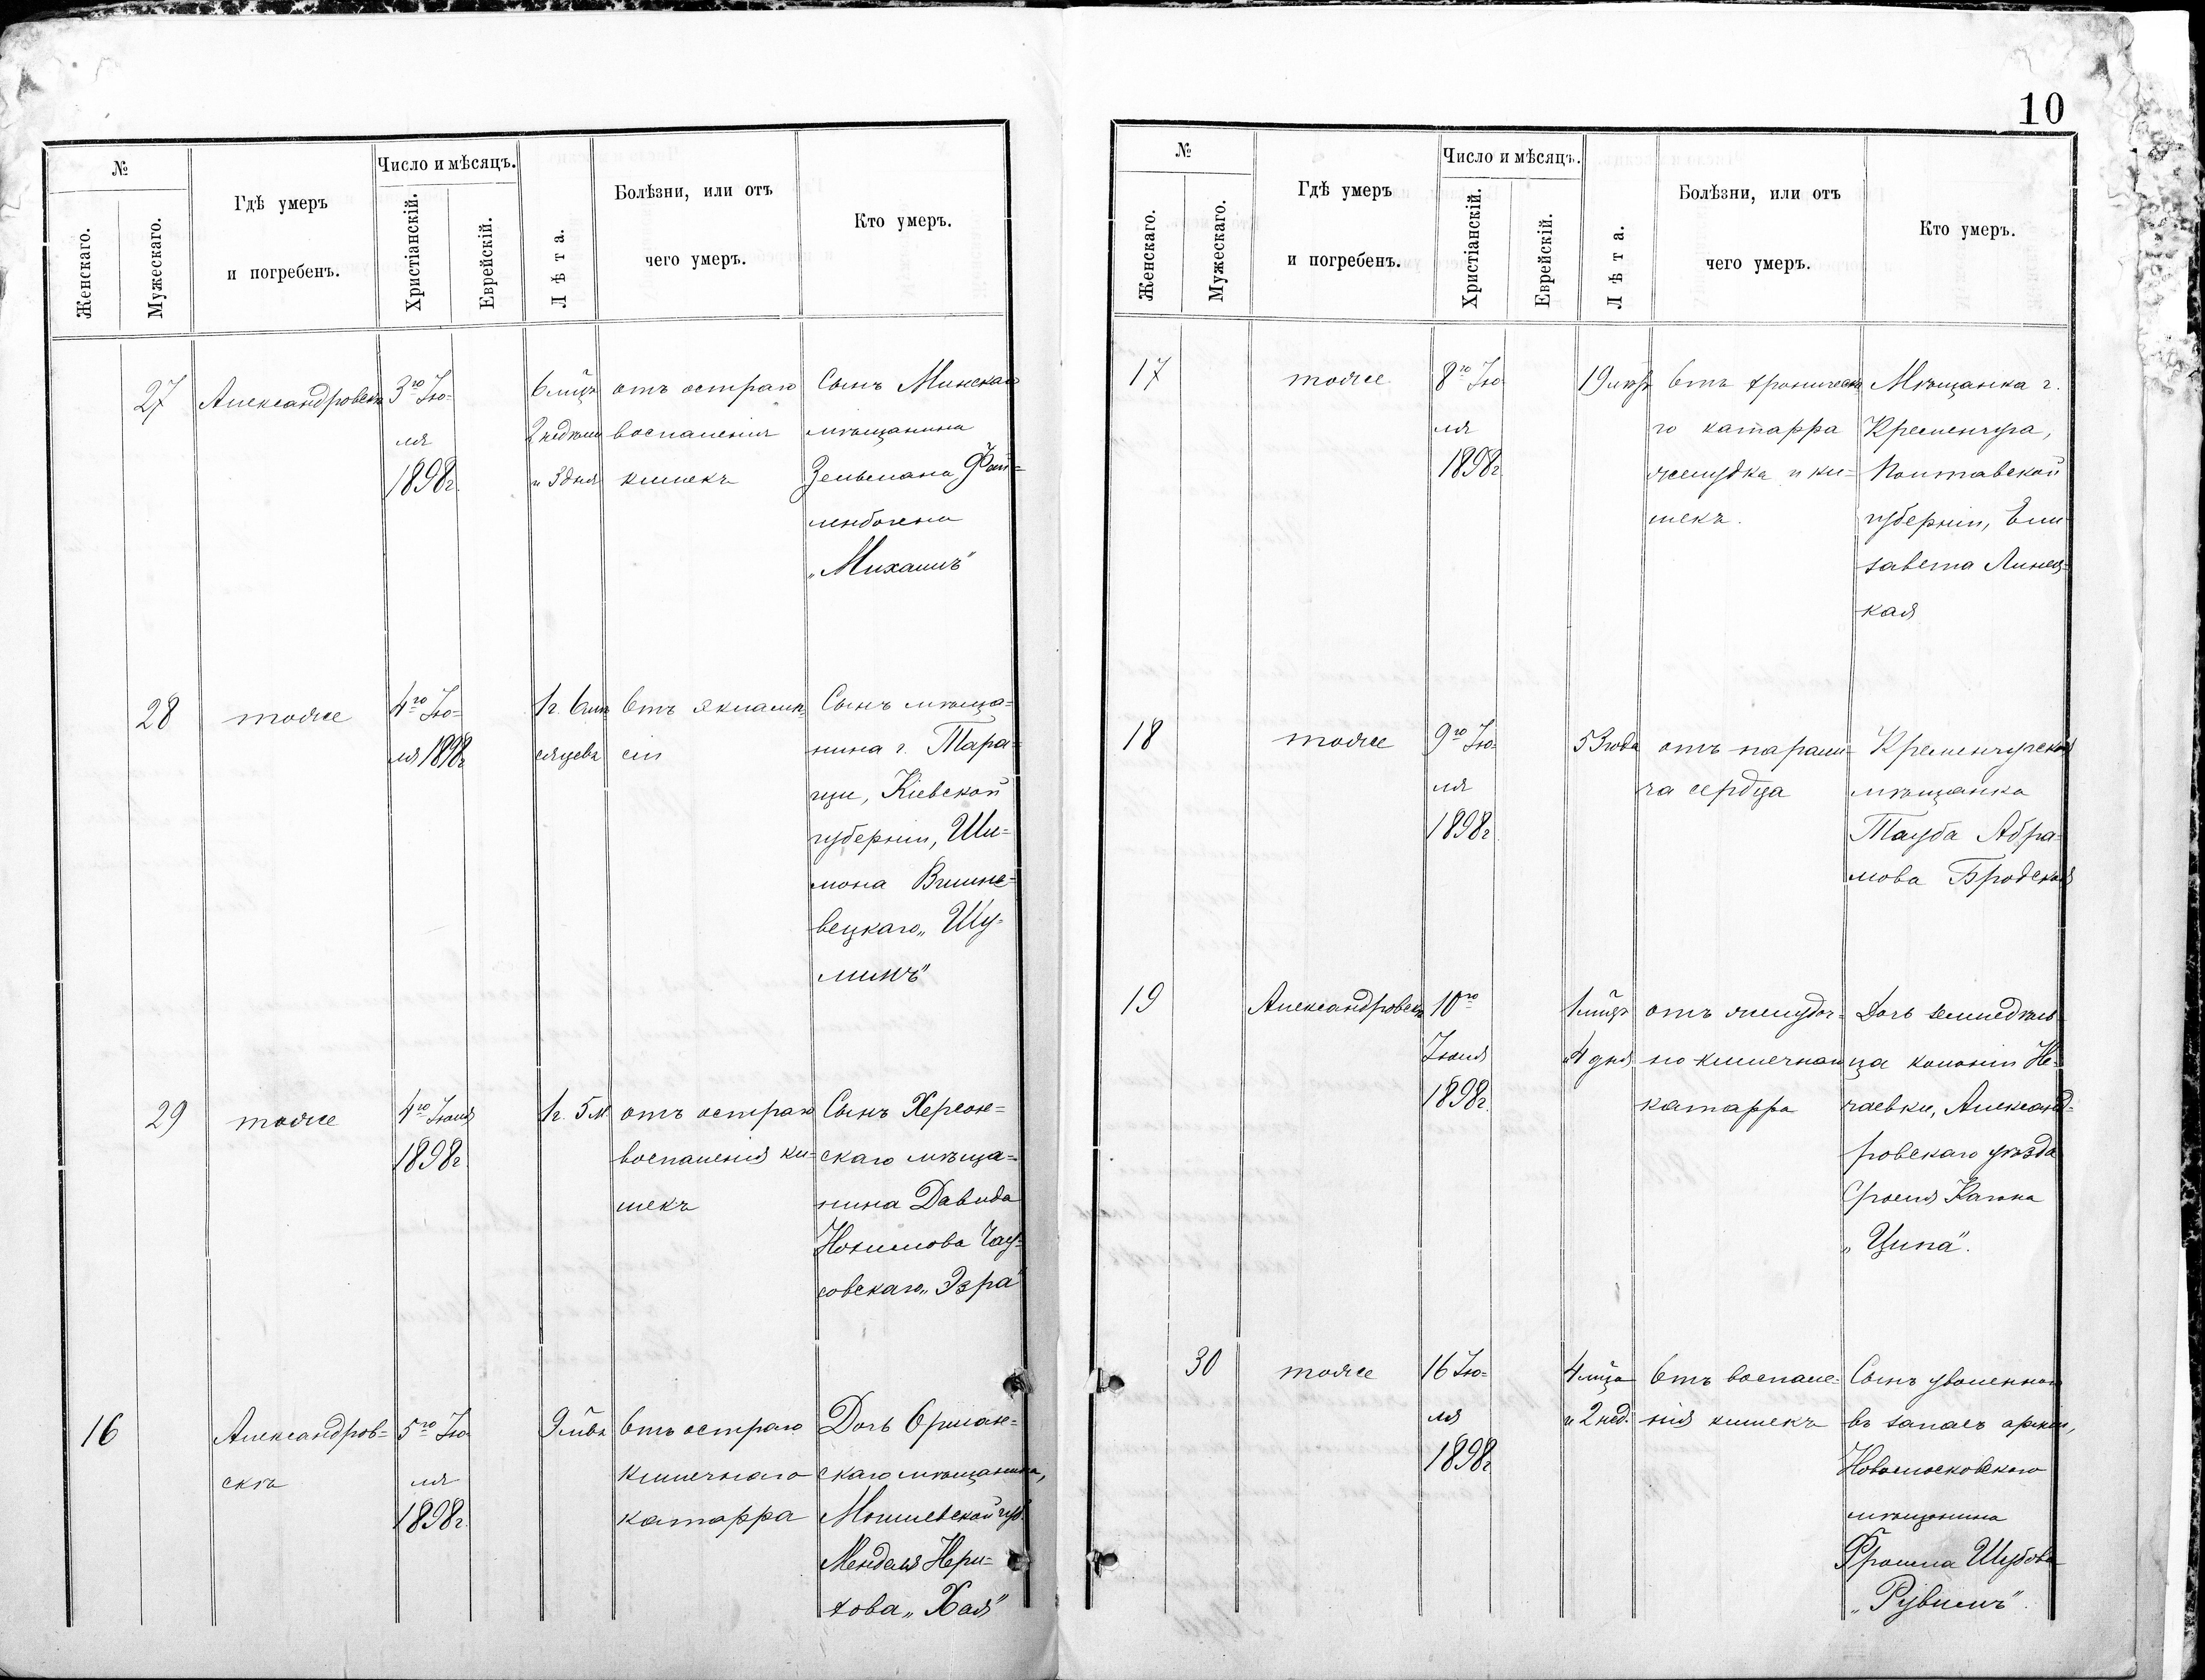 10
№
Женскаго.
Мужескаго.
Гдѣ умеръ
и погребенъ.
Число и мѣсяцъ.
Христіанскій.
Еврейскій.
Лѣта.
Болѣзни, или отъ
чего умеръ.
Кто умеръ.
27
Александровскъ
3го Ію-
ля
1898г.
6 м-цъ
2 недѣли
и 3 дня
отъ остраго
воспаленія
кишекъ
Сынъ Минскаго
мѣщанина
Зельмана
„Михаилъ"
28
тоже
4го Ію-
ля 1898г.
1г. 6 мѣ-
сяцевъ
Отъ эклампс-
сіи
Сынъ мѣща-
нина г. Тара-
щи, Кіевской
губерніи, Ши-
мона Вишне-
вецкаго „Шу-
лимъ"
29
тоже
4го Іюля
1898г.
1г. 5 м.
отъ остраго
воспаленія ки-
шекъ
Сынъ Херсон-
скаго мѣща-
нина Давида
Нохимова Чау-
совскаго „Эзра"
16
Александров-
скъ
5го Ію-
ля
1898г.
9 м-въ
Отъ остраго
кишечнаго
катарра
Дочь Оршан-
скаго мѣщанина,
Могилевской губ.
Менделя
„Хая"
№
Женскаго.
Мужескаго.
Гдѣ умеръ
и погребенъ.
Число и мѣсяцъ.
Христіанскій.
Еврейскій.
Лѣта.
Болѣзни, или отъ
чего умеръ.
Кто умеръ.
17
тоже
8го Ію-
ля
1898г.
19 лѣтъ
Отъ хроническа-
го катарра
желудка и ки-
шекъ.
Мѣщанка г.
Кременчуга,
Полтавской
губерніи, Ели-
завета Линец-
кая
18
тоже
9го Ію-
ля
1898г.
53 года
отъ парали-
ча сердца
Кременчугская
мѣщанка
Тауба Абра-
мова Бродская
19
Александровскъ
10го
Іюля
1898г.
1 м-цъ
и 4 дня
отъ желудоч-
но-кишечнаго
катарра
Дочь земледѣль-
ца колоніи Не-
чаевки, Александ-
ровскаго уѣзда
Сроеля Кагана
„Ципа".
30
тоже
16 Ію-
ля
1898г.
4 м-ца
и 2 нед.
Отъ воспале-
нія кишекъ
Сынъ уволеннаго
въ запасъ арміи,
Новомосковскаго
мѣщанина
Фроима Шубова
„Рувимъ".